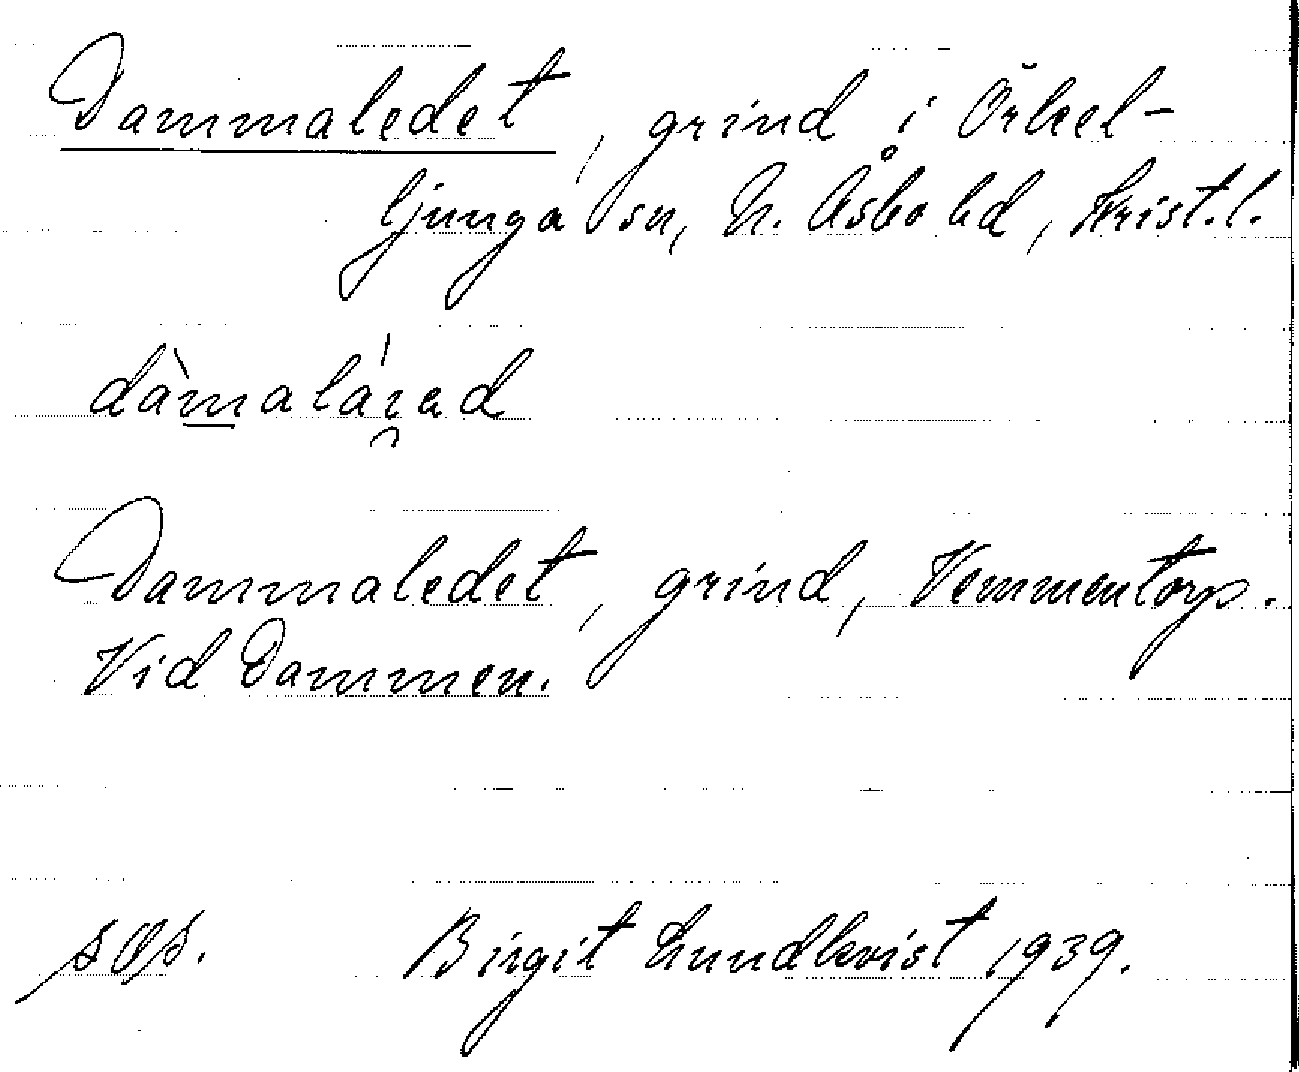 Dammaledet, grind i Örkel-
ljunga sn, N. Åsbo hd, Krist.l.
Dammaledet, grind, Vemmentorp.
Vid Dammen.
Birgit Lundkvist 1939.